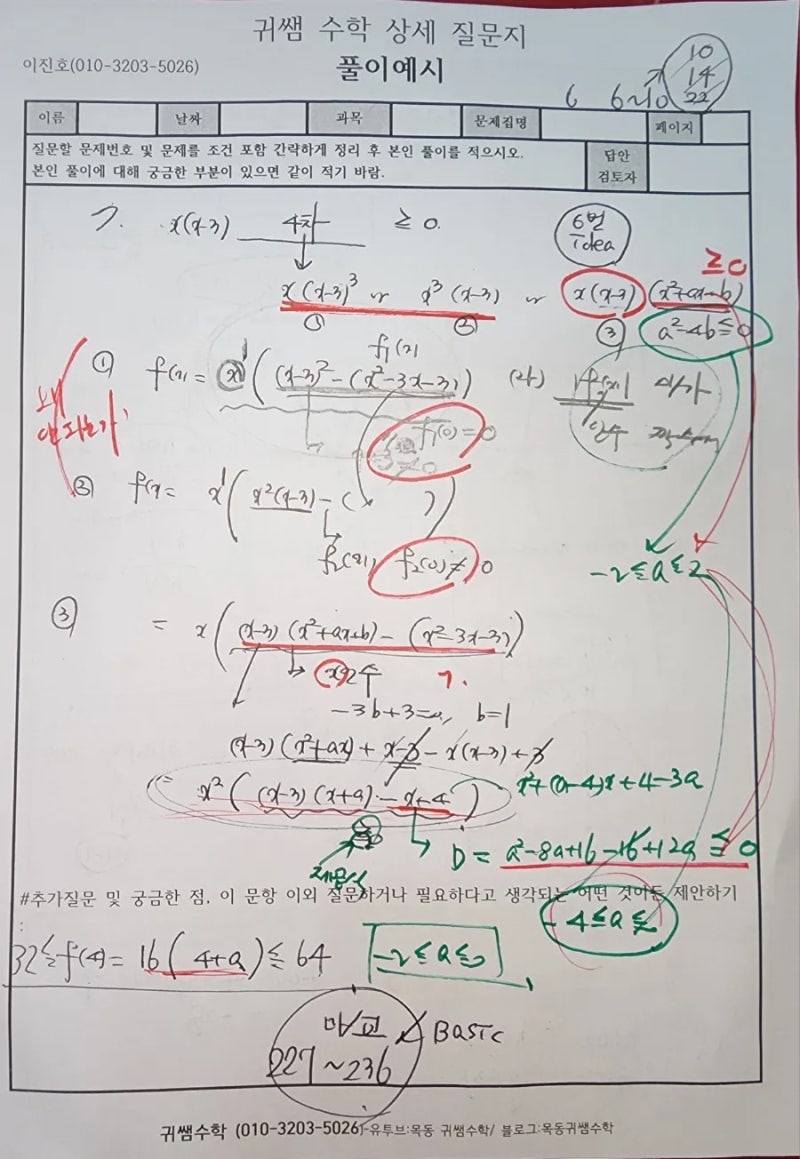 귀쌤 수학 상세 질문지
이진호(010-3203-5026)
풀이예시
10
14
22
6 6~10
이름 날짜 과목 문제집명 페이지
질문할 문제번호 및 문제를 조건 포함 간략하게 정리 후 본인 풀이를 적으시오.
본인 풀이에 대해 궁금한 부분이 있으면 같이 적기 바람.
답안
검토자
ㄱ. x(x-3) 4차 ≥ 0.
6번
idea
≥0
x(x-3)³ or x³(x-3) or x(x-3) (x²+ax+b)
① ② ③ a²-4b≤0
f₁(x)
① f(x) = x¹((x-3)²-(x²-3x-3)) (나) |f(x)|
f₁(0)=0
왜
안되는가
② f(x)= x¹(x²(x-3)-( ))
f₂(x), f₂(0)≠0
-2≤a≤2
③ = x((x-3)(x²+ax+b)-(x²-3x-3))
x인수 ㄱ.
-3b+3=0, b=1
(x-3)(x²+ax)+x-3-x(x-3)+3
= x²((x-3)(x+a)-x+4) x²+(a-4)x+4-3a
D = a²-8a+16-16+12a ≤ 0
#추가질문 및 궁금한 점, 이 문항 이외 질문하거나 필요하다고 생각되는 어떤 것이든 제안하기
-4≤a≤
32≤f(4)= 16(4+a)≤64 -2≤a≤0
마/교 BASIC
227~236
귀쌤수학 (010-3203-5026)-유투브:목동 귀쌤수학/ 블로그:목동귀쌤수학